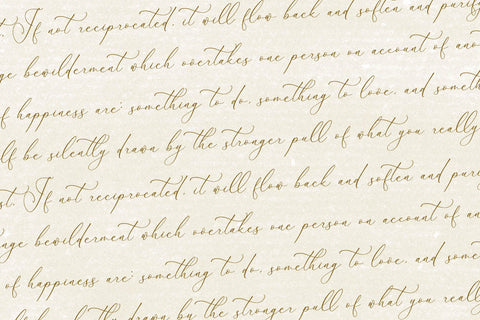 t. If not reciprocated, it will flow back and soften and purify
ge bewilderment which overtakes one person on account of ano
f happiness are: something to do, something to love, and someth
lf be silently drawn by the stronger pull of what you really
st. If not reciprocated, it will flow back and soften and puri
nge bewilderment which overtakes one person on account of an
of happiness are: something to do, something to love, and some
lf be silently drawn by the stronger pull of what you really